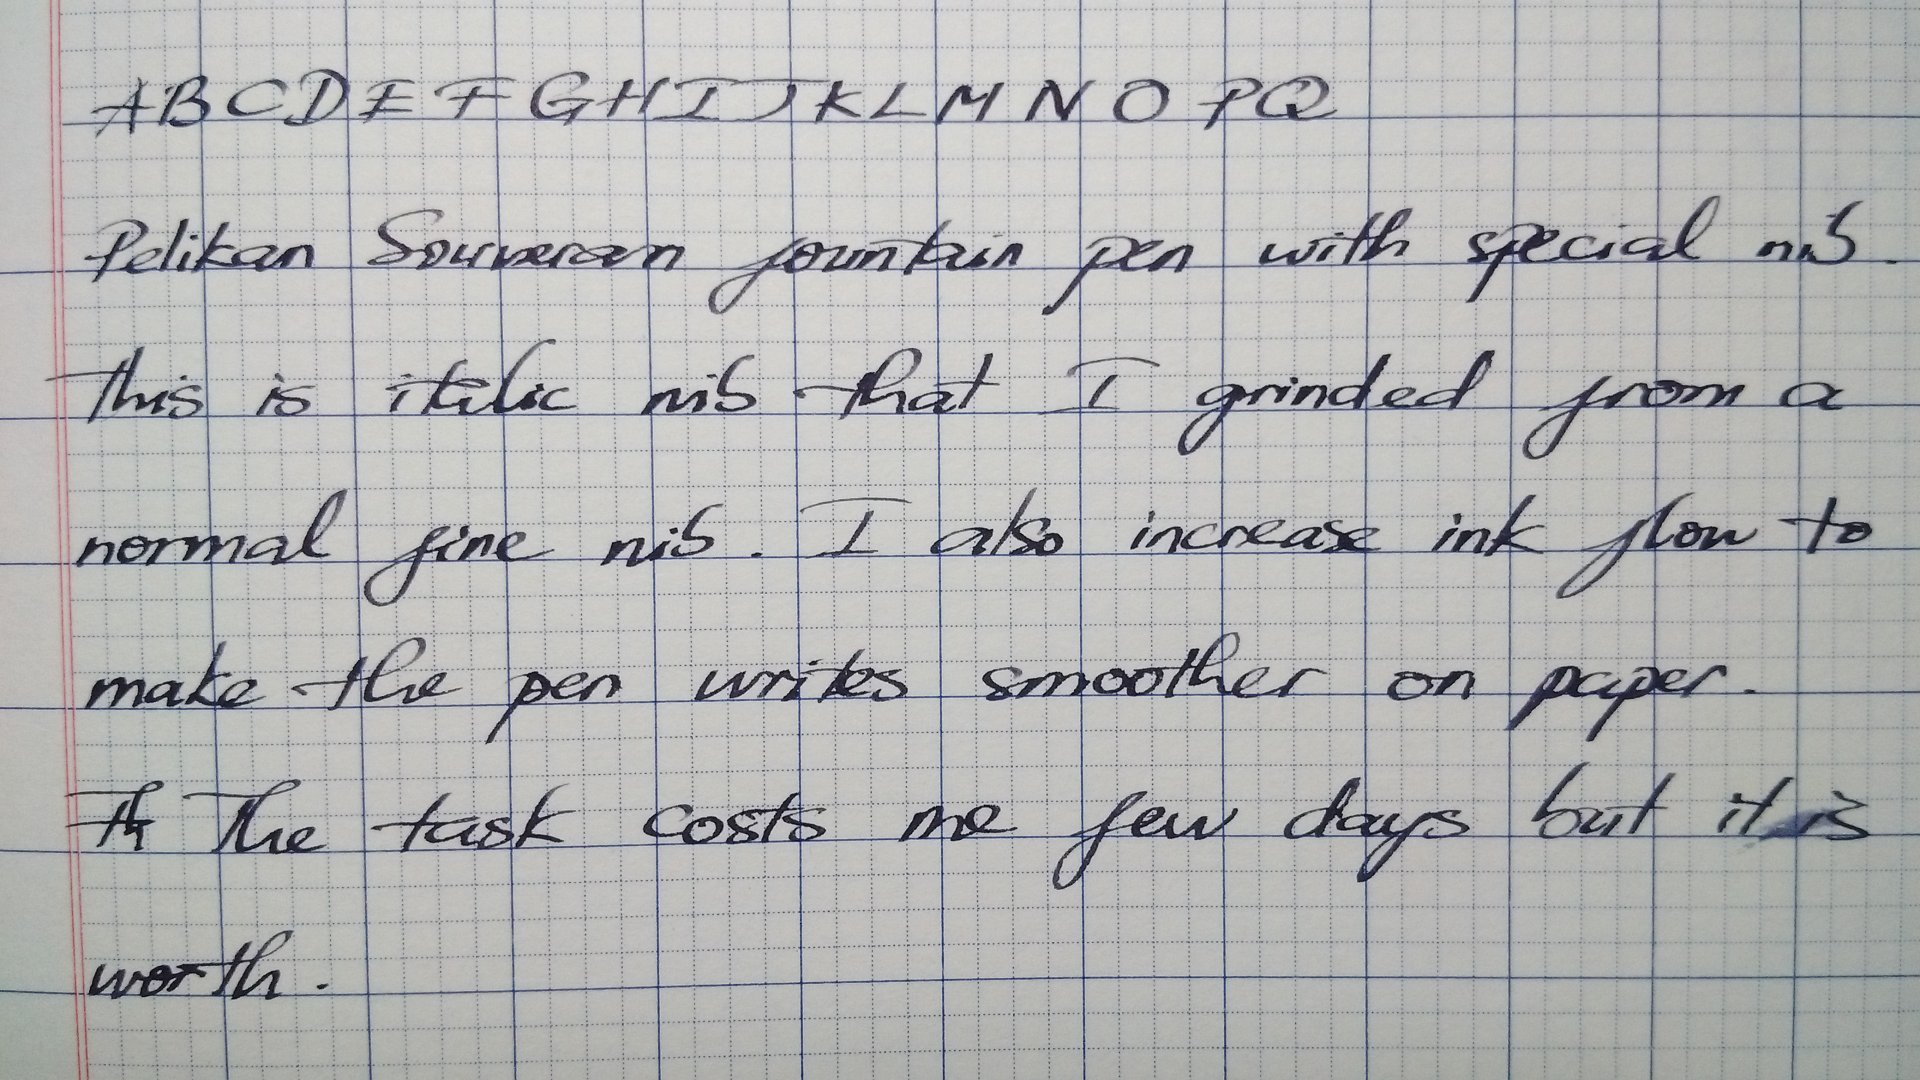 A B C D E F G H I J K L M N O P Q
Pelikan Souveran fountain pen with special nib.
This is italic nib that I grinded from a
normal fine nib. I also increase ink flow to
make the pen writes smoother on paper.
Th The task costs me few days but it is
worth.